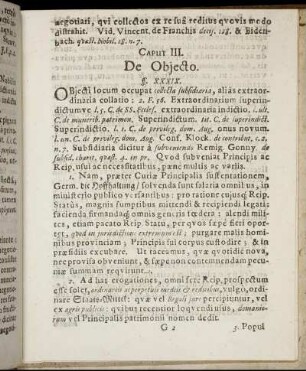 negotiari, qui collectos ex re suâ reditus quovis modo
distrahit. Vid. Vincent. de Franchis decis. 128. & Eiden-
bach. quæst. Nobil. 18. n. 7.
CAPUT III.
De Objecto.
§. XXXIX.
OBjecti locum occupat collecta subsidiaria, aliàs extraor-
dinaria collatio: 2. F. 56. Extraordinarium superin-
dictumve l. 5. C. de SS. Eccles. extraordinaria indictio. l. ult.
C. de munerib. patrimon. Superindictum. tot. C. de superindict.
Superindictio. l. 1. C. de privileg. dom. Aug. onus novum.
l. un. C. de privileg. dom. Aug. Conf. Klock. de contribut. c. 2.
n. 7. Subsidiaria dicitur à subveniendo Remig. Gonny. de
subsid. charit. quæst. 4. in pr. Quod subveniat Principis ac
Reip. usui ac necessitatibus, pæne mudis ac variis.
1. Nam, præter Curiæ Principalis sustentationem,
Germ. die Hoffhaltung/ solvenda sunt salaria omnibus, in
ministerio publico versantibus: pro ratione cujusq; Reip.
Statûs, magnis sumptibus mittendi & recipiendi legati:
facienda firmandaq; omnis generis fœdera: alendi milites,
etiam pacato Reip. Statu, per quos sæpè fieri oportet,
quod in juridicis extraordinarii; purgare malis homi-
nibus provinciam; Principis sui corpus custodire; & in
præsidiis excubare. Ut taceamus, quæ quotidie nova,
neq; provisa obveniunt, & sæpenon contemnendam pecu-
niæ summam requirunt.
2. Ad has erogationes, omni ferè Reip. prospectum
esse solet, ordinariis ac perpetuis mediis & reditibus, vulgo, ordi-
nare Staats-Mittel: quæ vel Regali jure percipiuntur, vel
ex agris publicis; quibus recentior loquendi usus, domanio-
rum vel Principalis patrimonii nomen dedit.
G 2
3. Popul